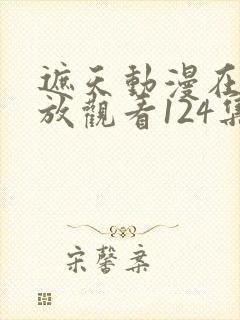 遮天動漫在
放觀看124集
宋馨桑